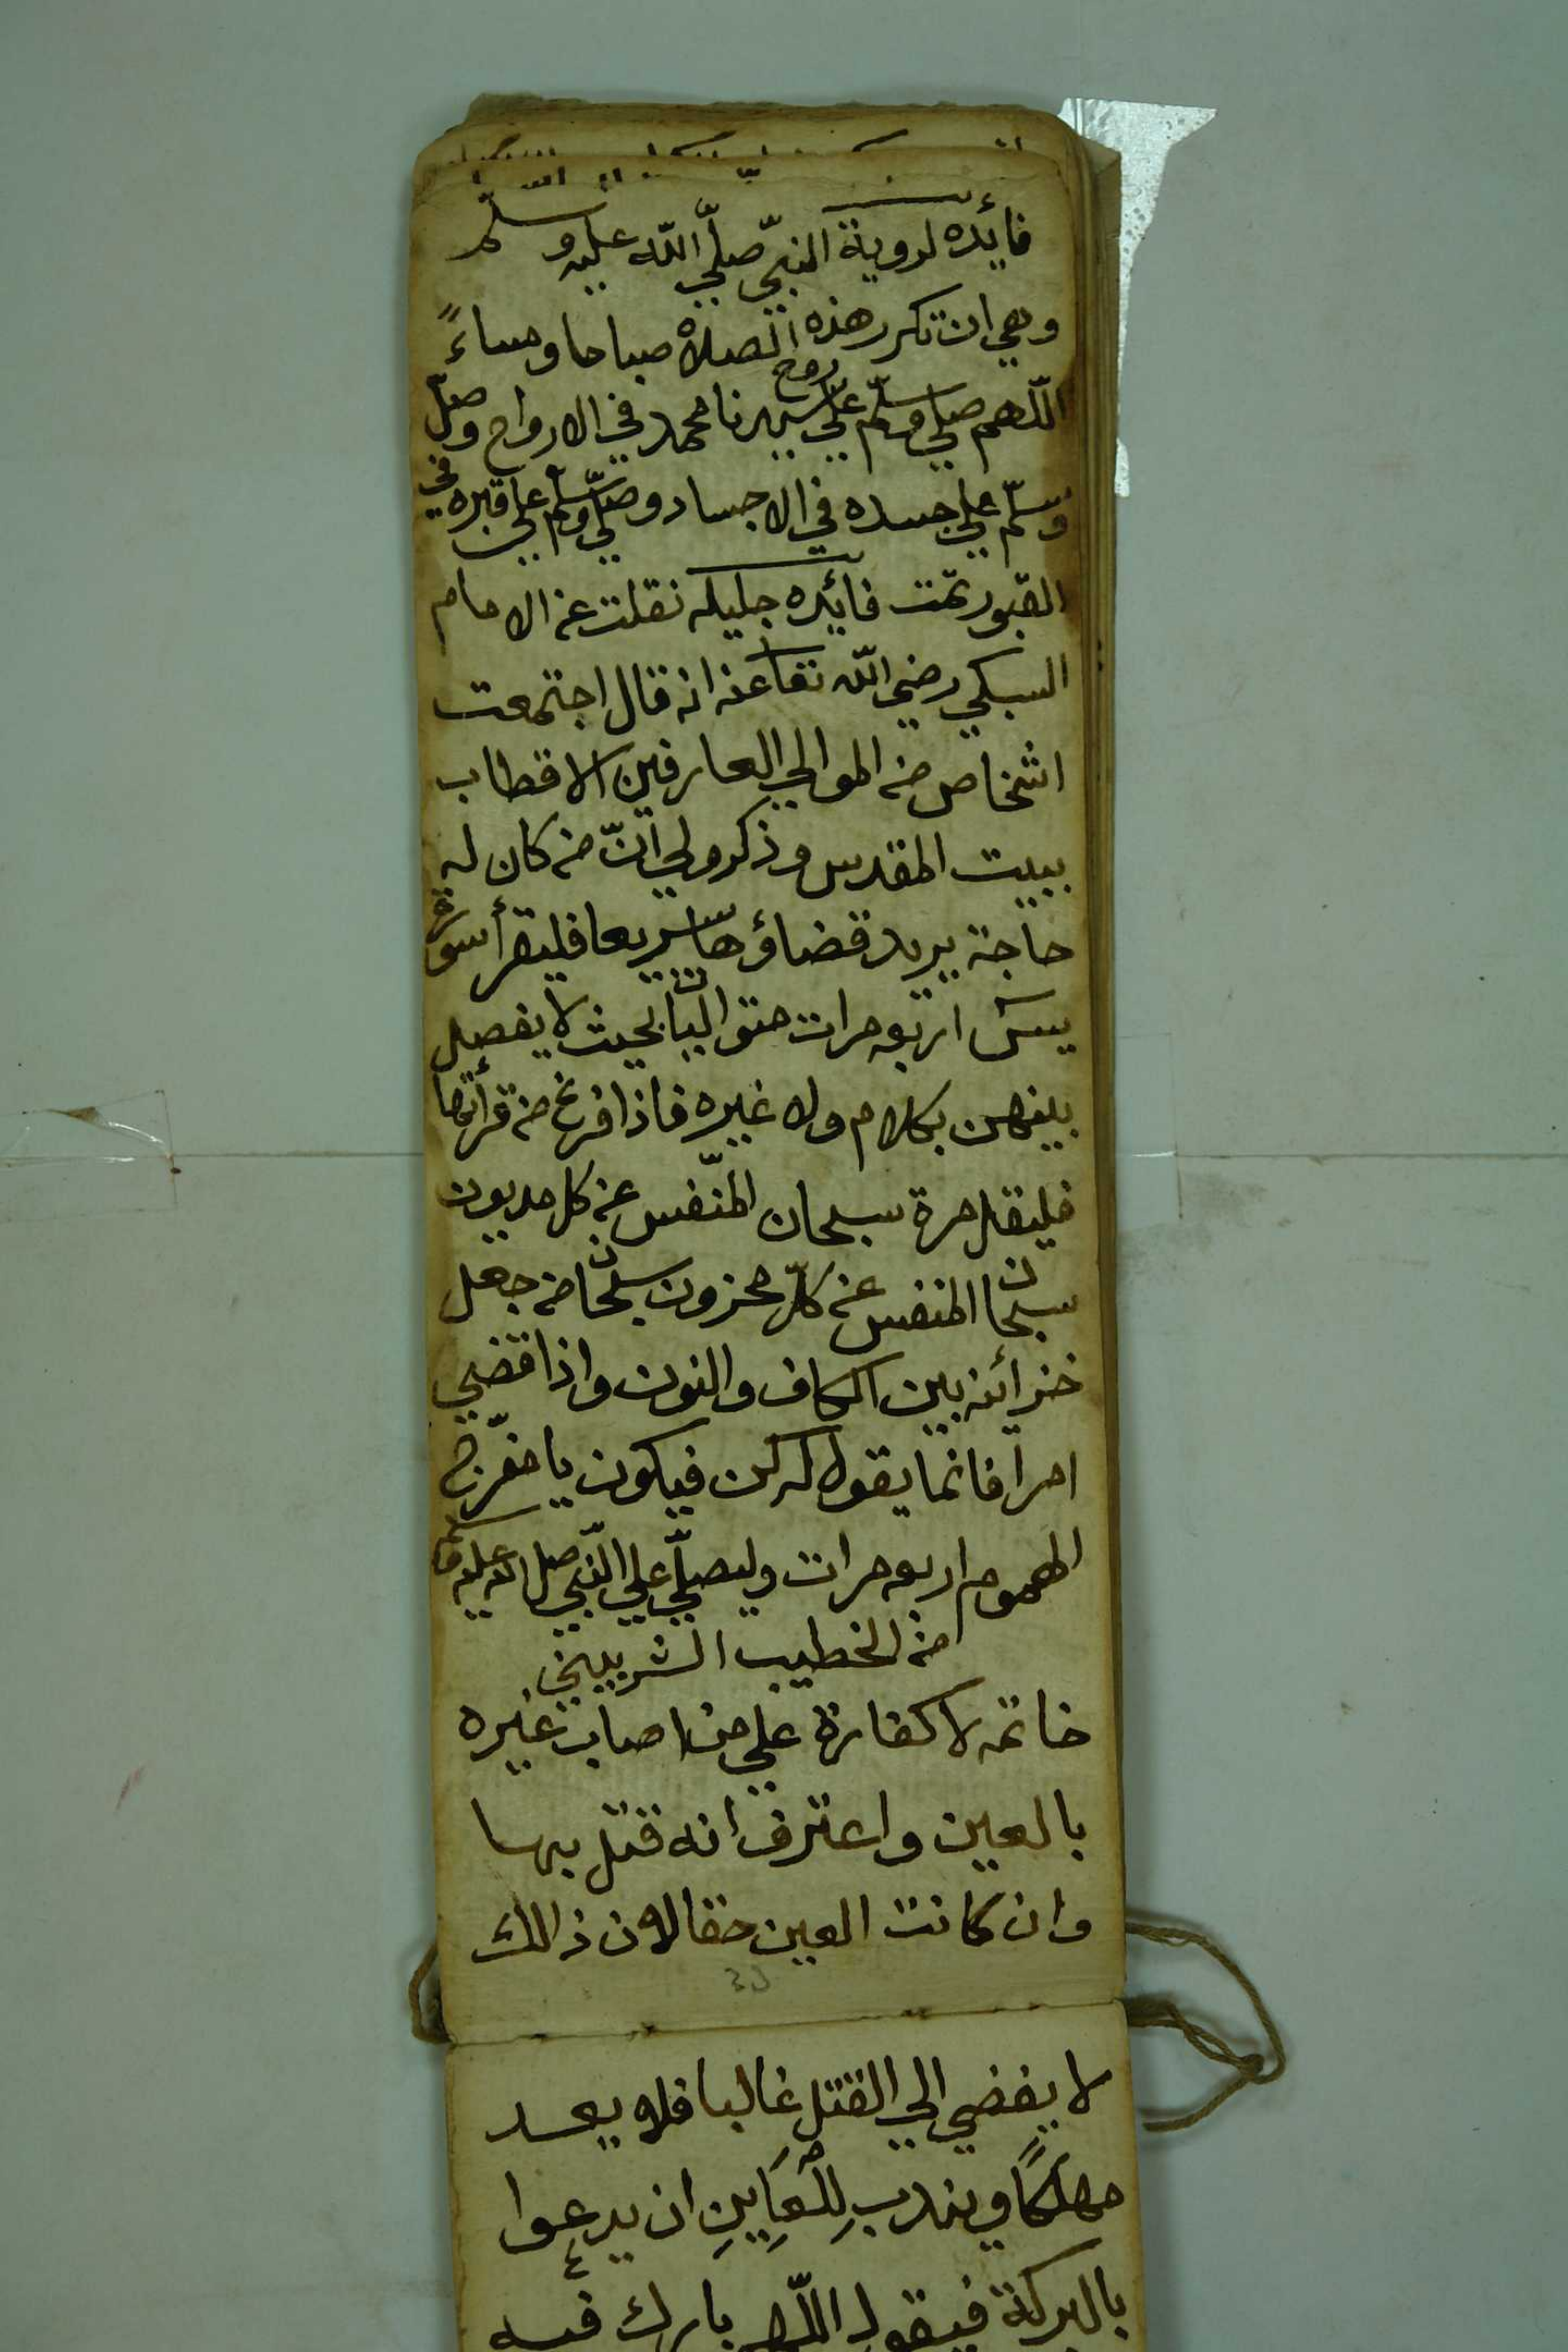 فائده لروية النبيّ صلّي اللّه عليه وسلّم
وهي ان تكرر هذه الصلاة صباحا ومساءً
اللّهم صلي وسلّم علي روح سيدنا محمد في الارواح وصلّ
وسلّم علي جسده في الاجساد وصلّي وسلّم علي قبره في
القبور تمّت فائده جليله نقلت عن الامام
السبكي رضي اللّه تعا عنه انه قال اجتمعت
اشخاص من الموالي العارفين الاقطاب
ببيت المقدس وذكرو لي انّ من كان له
حاجة يريد قضاؤها سريعا فليقرأ سورة
يس اربعه مرات متواليات بحيث لا يفصل
بينهن بكلام ولا غيره فاذا فرغ من قرأتها
فليقل مرة سبحان المنّفس عن كل مديون
سبحان المنفس عن كلّ محزون سبحان من جعل
خزائنه بين الكاف والنون واذا قضي
امرا فانما يقول له كن فيكون يا مفرّج
الهموم اربعه مرات وليصلّي علي النّبي صل الله عليه وسلم
من الخطيب الشربيني
خاتمه لا كفارة علي من اصاب غيره
بالعين واعترف انه قتل بها
وان كانت العين حقا لان ذالك
لا يفضي الي القتل غالبا فلا يعد
مهلكًا ويندب لِلْعَايِنِ ان يدعوا
بالبركة فيقول اللّهم بارك فيه